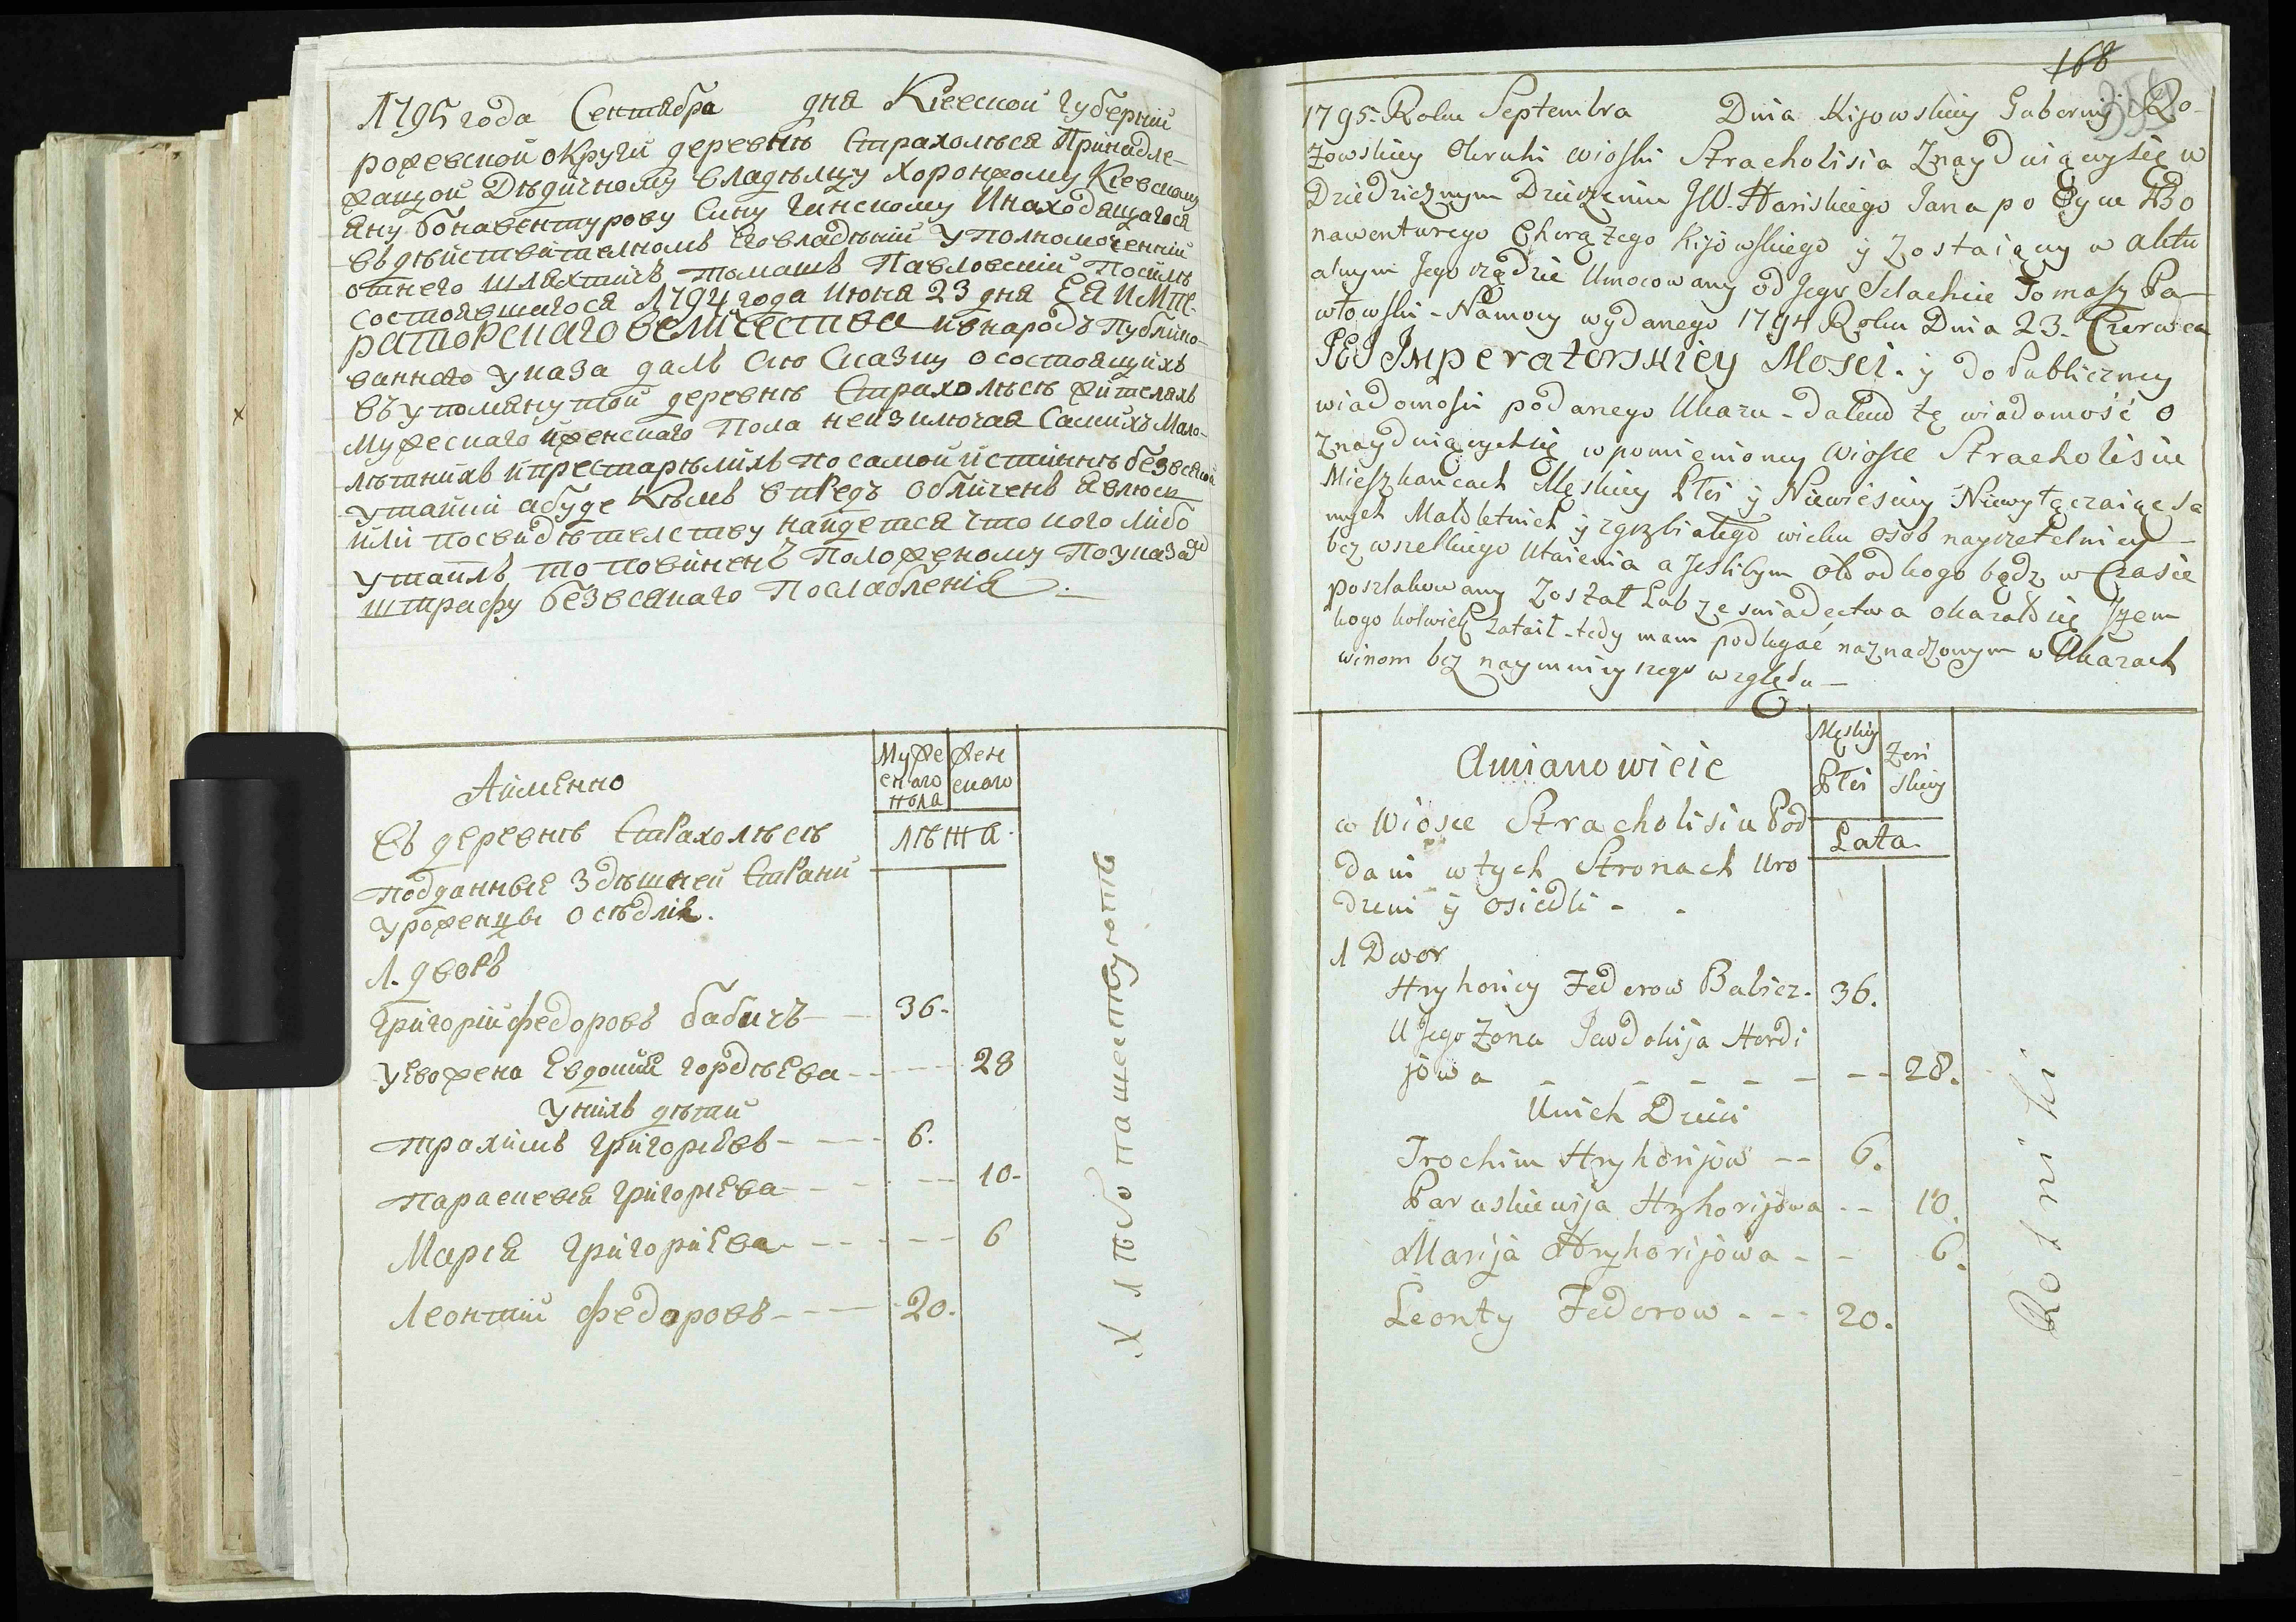 1795 года Сентября дня Кіевской губерніи
рожевской округи деревнѣ Страхолѣся Принадле-
жащой Дѣдичному владѣлцу Хоронжому Кіевскому
Яну бонавентурову Сину Ганскому Инаходящагося
въ дѣйствителномъ Еговладѣніи Уполномоченній
отнего шляхтичъ томашъ Павловскій Посилѣ
состоявшагося 1794 года Июня 23 дня ЕЯ ИМПЕ-
РАТОРСКАГО ВЕЛИЧЕСТВА ивнародъ Публико-
ванного Указа далъ Сию Сказку осостоящихъ
въ упомянутой деревнѣ Страхолѣсѣ жителяхъ
Мужескаго иженскаго Пола неизключая Самихъ Мало-
лѣтнихъ ипрестарѣлихъ по самой истиннѣ безвсякой
утайки абуде Кѣмъ впредъ обличенъ явлюсь
или посвидѣтелству найдется что кого либо
утаилъ то повиненъ Положеному Поуказа
штрафу безвсякаго Послабленія
Аименно
Мужескаго пола
Женскаго
Лѣта
Въ деревнѣ Страхолѣсѣ
подданные Здѣшней Страни
уроженцы осѣдліе.
1. дворъ
Григорій федоровъ бабичъ 36.
У Его жена Евдокия гордѣева 28
У нихъ дѣти
трахимъ григориевъ 6.
параскевія григориева 10.
Мария григориева 6
Леонтий федоровъ 20.
Хлѣбопашествують
168
359
1795. Roku Septembra Dnia Kijowskiey Gubernij Ro-
żowskiey Okruhi wioski Stracholisia Znayduiącysię w
Dziedzicznym Dzierzeniu JW. Hańskiego Jana po Oycu Bo
nawenturego Chorążego Kijowskiego y Zostaiący w aktu
alnym Jego rządzie Umocowany od Jego Szlachcic Tomasz Pa-
włowski - Namocy wydanego 1794 Roku Dnia 23. Czerwca
JEJ IMperatorskiey Mosci. y do Publiczney
wiadomosci podanego Ukazu - dałem tę wiadomość o
Znayduiącychsię wpomienioney Wiosce Stracholisiu
Mieszkańcach Męskiey Płci y Niewiesciey Niewyłączaiąc Sa
mych Małoletnich y zgrzbiałego wieku osób nayrzetelniey
bez wszelkiego Utaienia a Jeslibym ab od kogo bądz w Czasie
poszlakowany Został Lub ze swiadectwa okazałosię Iżem
kogo kolwiek zataił - tedy mam podlegać naznaczonym w Ukazach
winom bez naymnieyszego względu -
Amianowicie
Męskiey Płci
Żeńskiey
Lata.
w Wiosce Stracholisiu Pod
dani w tych Stronach Uro
dzeni y osiedli - -
1 Dwor
Hryhoriey Federow Babicz. 36.
U Jego Żona Jewdokija Hordi
jowa 28.
Unich Dzieci
Trochim Hryhorijow 6.
Paraskiewija Hryhorijowa 10.
Marija Hryhorijowa 6.
Leonty Fedorow 20.
Rolniki